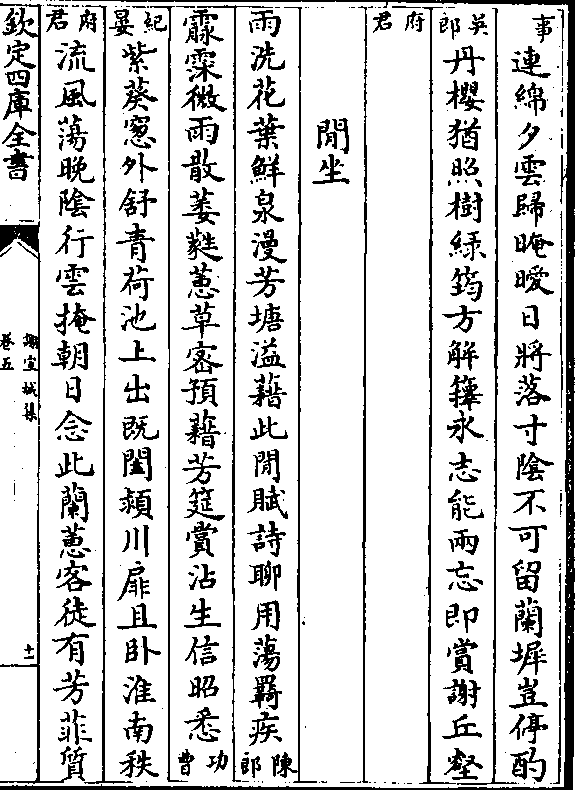 事連綿夕雲歸晻曖日將落寸陰不可留蘭墀豈停酌
吳郎丹櫻猶照樹緑筠方解籜永志能兩忘即賞謝丘壑
府君
閒坐
雨洗花葉鮮泉漫芳塘溢藉此閒賦詩聊用蕩羇疾陳郎
霡霂微雨散葳蕤蕙草宻預藉芳筵賞沾生信昭悉功曹
紀晏紫葵窻外舒青荷池上出既闔潁川扉且卧淮南秩
府君流風蕩晚陰行雲掩朝日念此蘭蕙客徒有芳菲質
欽定四庫全書
謝宣城集
卷五
十一